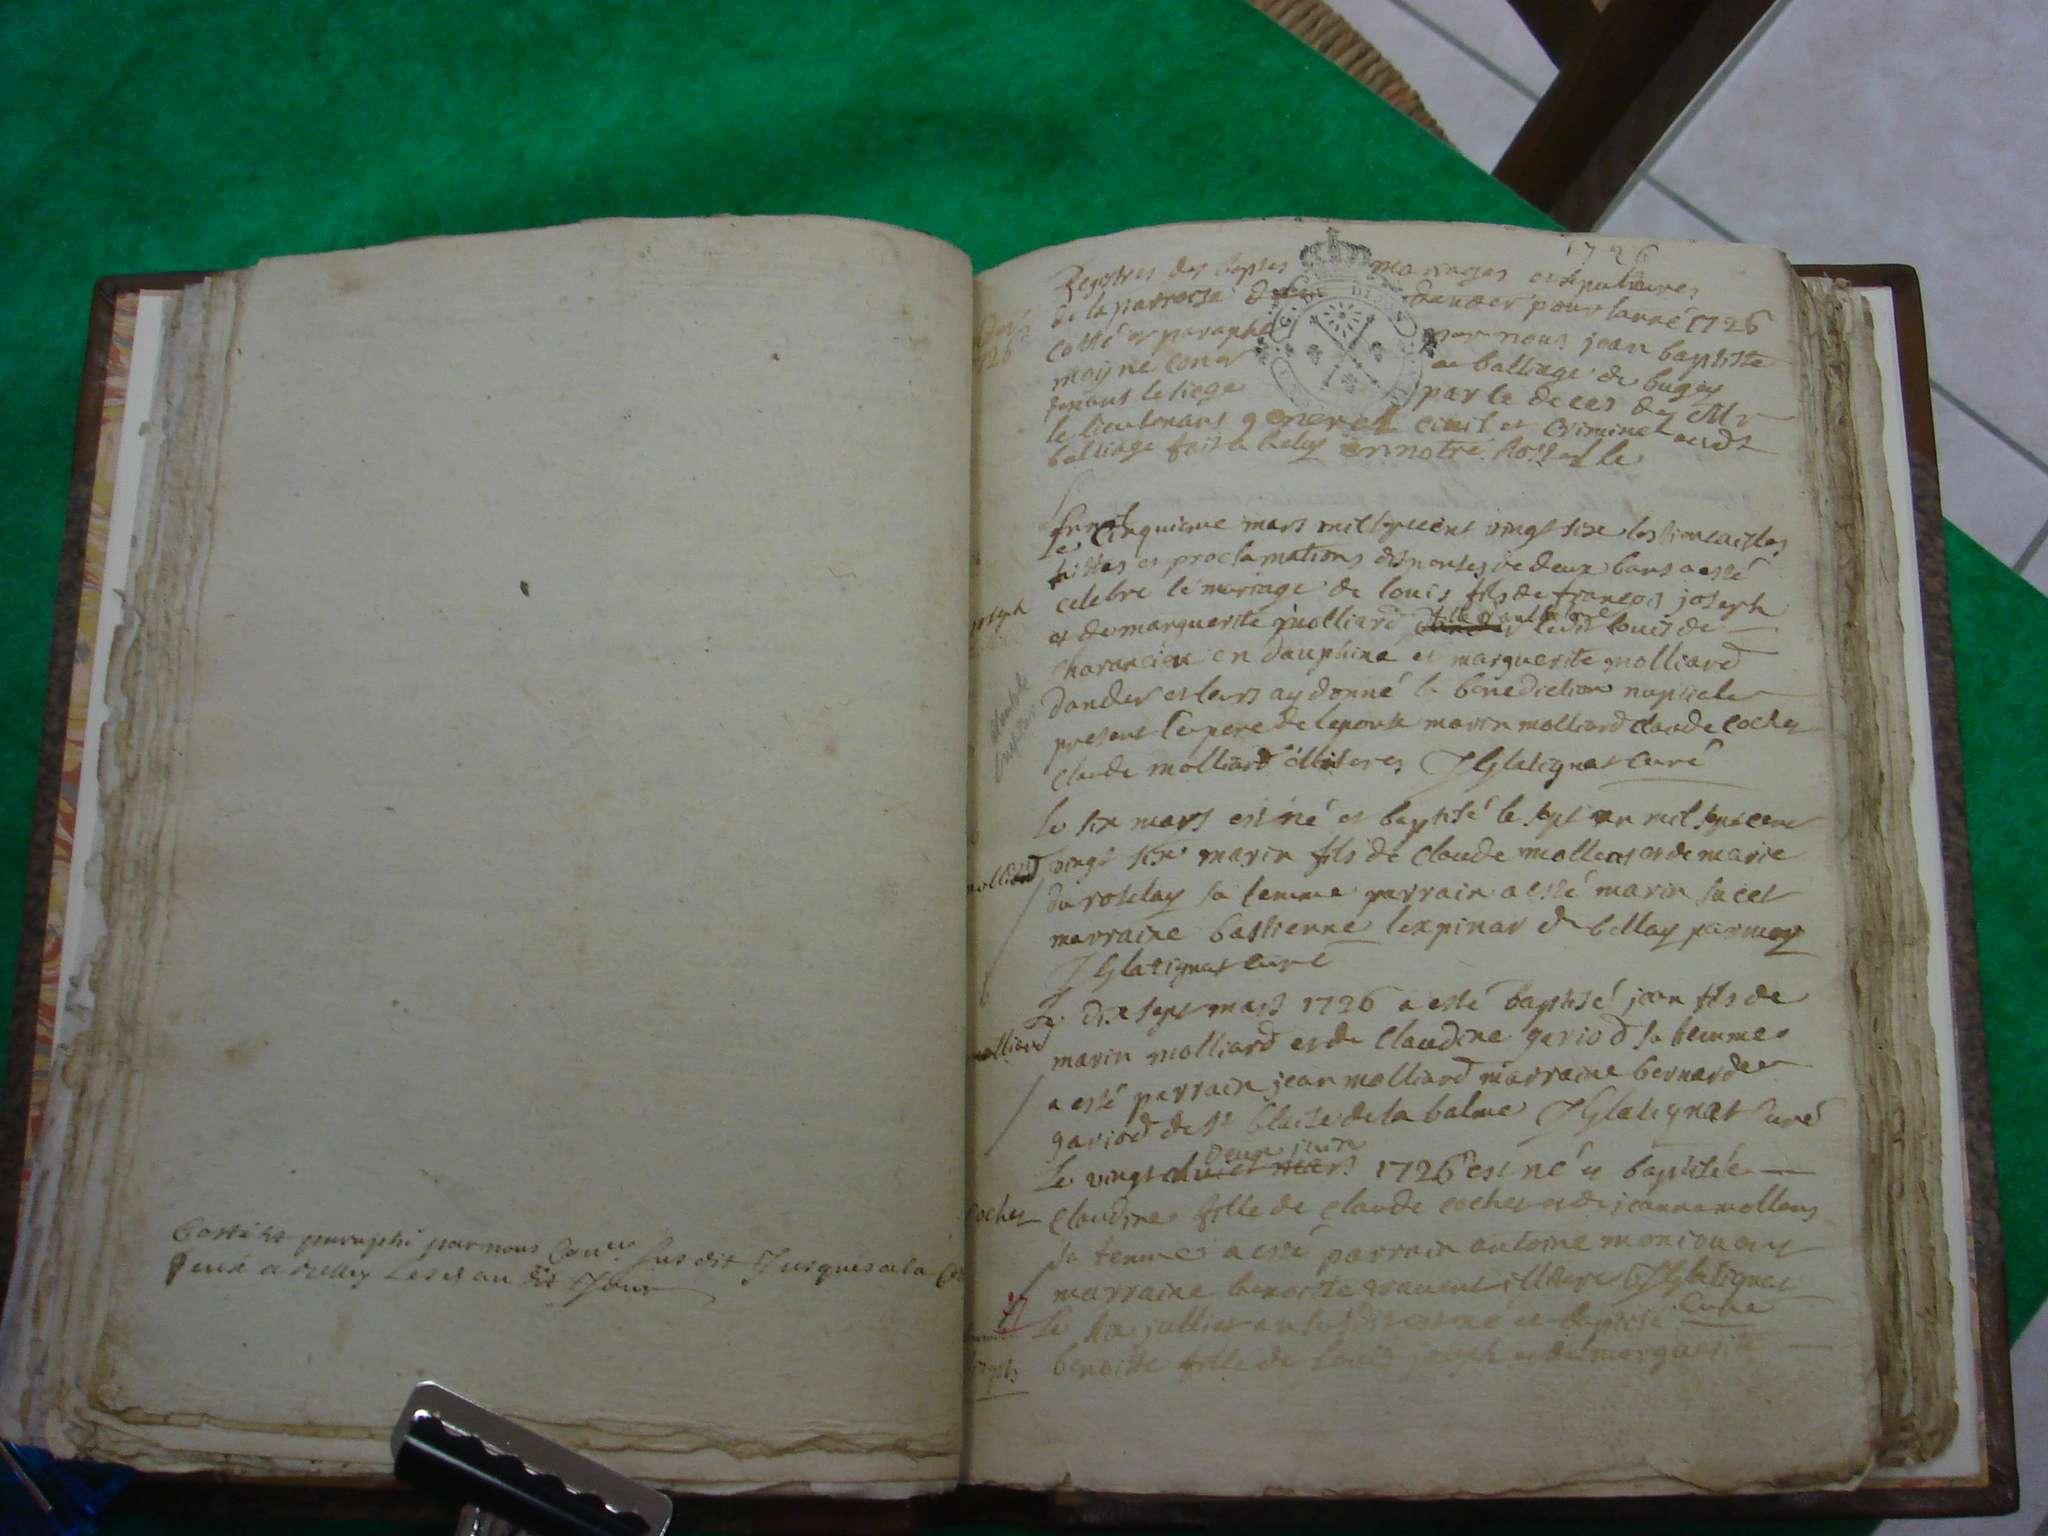 Cotté et paraphé par nous Con.er susdit Jusques a la
a Belley Les et an dit Jour
1726
Registres des bapt mariages et sepultures
de la parroesse dander pour lanné 1726
cotté et paraphé par nous jean baptiste
moyne con.er au balliage de bugey
tenant le siege par le deces de Mr
le lieutenant general civil et criminel audt
balliage fait a belley en notre hostel le
Le cinquieme mars mil sept cent vingt sixe les fiancailles
faittes et proclamations dispenses de deux bans a esté
celebre le mariage de louis fils de francois joseph
joseph
et de marguerite molliard ledit louis de
charancieu en dauphine et marguerite molliard
dander et leurs ay donné la benediction nuptiale
present le pere de lepouse marin molliard claude cochet
claude molliard illiteres J Glatignat Curé
Le six mars est né et baptisé le sept an mil sept cent
molliard
vingt six marin fils de claude mollard et de marie
du roselay sa femme parrain a esté marin sucet
marraine bastienne lexpinar de bellay par moy
J Glatignat curé
Le dix sept mars 1726 a esté baptisé jean fils de
molliard
marin molliard et de claudine gariod sa femme
a esté parrain jean molliard marraine bernarde
gariod de st blaise de la balme J Glatignat curé
deux juin
Le vingt 1726 est né et baptisée
Cochet
claudine fille de claude cochet et de jeanne mollard
sa femme a esté parrain antoine
marraine benoitte illitere J Glatignat
curé
Le six jullliet an susdit est né et baptisé
joseph
benoitte fille de louis joseph et de marguerite